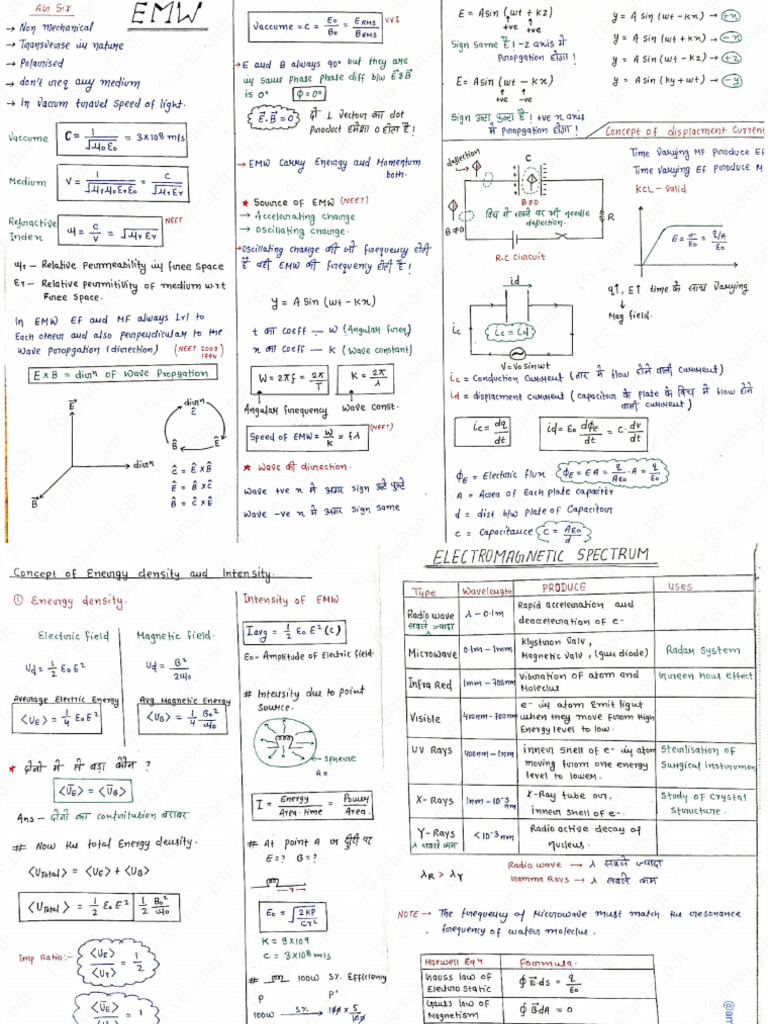 AG Sir
EMW
→ Non mechanical
→ Transverse in nature
→ Polarised
→ don't req any medium
→ In Vaccum travel speed of light.
Vaccume C = 1/√μ0ε0 = 3×10⁸ m/s
Medium V = 1/√μrμ0εrε0 = C/√μrεr
Refractive Index μ = C/V = √μrεr NEET
μr – Relative permeability in free space
εr – Relative permitivity of medium w.r.t
Free Space.
In EMW EF and MF always Lrl to
Each other and also perpendicular to the
Wave perpogation (direction) (NEET 2007 1994)
E×B = dirⁿ of wave Propgation
E
dirⁿ
B
dirⁿ
Ĉ
B̂
Ê
Ĉ = Ê × B̂
Ê = B̂ × Ĉ
B̂ = Ĉ × Ê
Vaccume = C = E0/B0 = ERMS/BRMS VVI
→ E and B always 90° but they are
in same phase phase diff b/w E & B
is 0° ϕ=0°
E.B = 0 दो ⊥ Vector का dot
product हमेशा 0 होता है!
→ EMW Carry Energy and Momentum
both.
★ Source of EMW (NEET)
→ Accelerating charge
→ Oscillating charge.
→ Oscillating charge की जो frequency होती
है वही EMW की frequency होती है!
y = A sin (wt - kx)
t का coeff — W (Angular freq)
x का coeff — K (Wave constant)
W = 2πf = 2π/T K = 2π/λ
Angular frequency Wave const.
Speed of EMW = W/K = fλ (NEET)
★ Wave की direction.
Wave +ve x में अगर sign उल्टे पुल्टे
Wave -ve x में अगर sign same
E = A sin (wt + kz)
+ve +ve
Sign same है! -z axis में
propgation होगा!
E = A sin (wt - kx)
+ve -ve
Sign उल्टा पुल्टा है! +ve x axis
में propgation होगा!
y = A sin (wt - kx) → +x
y = A sin (wt + kx) → -x
y = A sin (wt - kz) → +z
y = A sin (ky + wt) → -y
Concept of displacment Current
deflection
C
B≠0
B≠0
बिच में रखने पर भी needle
deflection.
R
R-C Circuit
Time Varying MF produce EF
Time Varying EF produce M
KCL – Valid
E = σ/ε0 = q/A/ε0
q↑, E↑ time के साथ Varying
Mag field.
id
ic
ic = id
V = V0 sin wt
ic = Conduction Current (तार में flow होने वाली current)
id = displacment current (capacitor के plate के बिच में flow होने
वाली current)
ic = dq/dt id = ε0 dϕE/dt = C·dv/dt
ϕE = Electric flux ϕE = EA = q/Aε0 · A = q/ε0
A = Area of Each plate capacitor
d = dist b/w plate of Capacitor
C = Capacitance C = Aε0/d
Concept of Energy density and Intensity.
① Energy density.
Electric field Magnetic field.
Ud = 1/2 ε0 E² Ud = B²/2μ0
Average Electric Energy Avg Magnetic Energy
⟨UE⟩ = 1/4 ε0 E² ⟨UB⟩ = 1/4 B0²/μ0
★ दोनों में से बड़ा कौन ?
⟨UE⟩ = ⟨UB⟩
Ans – दोनों का contribution बराबर
# Now the total Energy density.
⟨UTotal⟩ = ⟨UE⟩ + ⟨UB⟩
⟨UTotal⟩ = 1/2 ε0 E² 1/2 B0²/μ0
Imp Ratio:- ⟨UE⟩/⟨UT⟩ = 1/2
⟨UE⟩ = 1
Intensity of EMW
Iavg = 1/2 ε0 E² (c)
E0 – Amplitude of Electric field.
# Intensity due to point
Source.
sphere
A =
I = Energy/Area.time = Power/Area.
# At point A r दूरी पर
E = ? B = ?
r
E0 = √2KP/Cr²
K = 9×10⁹
C = 3×10⁸ m/s
# 100W 5% Efficiency
P P'
100W 5% → 100 × 5/100
ELECTROMAGNETIC SPECTRUM
Type Wavelength PRODUCE USES
Radio wave सबसे ज्यादा λ – 0.1m Rapid acceleration and deacceleration of e-
Microwave 0.1m – 1mm Klystron Valv, Magnetic Valv, (gun diode) Radar System
Infra Red 1mm – 700nm Vibration of atom and Moleclus Green hous effect
Visible 400nm – 700nm e- in atom Emit light when they move from High Energy level to low.
UV Rays 400nm – 1nm inner shell of e- in atom moving from one energy level to lower. Sterilisation of Surgical instrumen
X-Rays 1nm – 10⁻³nm X-Ray tube or, inner shell of e-. Study of Crystal Structure.
γ-Rays λ सबसे कम <10⁻³nm Radio active decay of nucleus.
λR > λγ
Radio wave → λ सबसे ज्यादा
Gamma Rays → λ सबसे कम
NOTE → The frequency of Microwave must match the resonance
frequency of water moleclus.
Maxwell Eqⁿ Formula.
Gauss law of Electro Static ∮ E.ds = q/ε0
Gauss law of Magnetism ∮ B.dA = 0